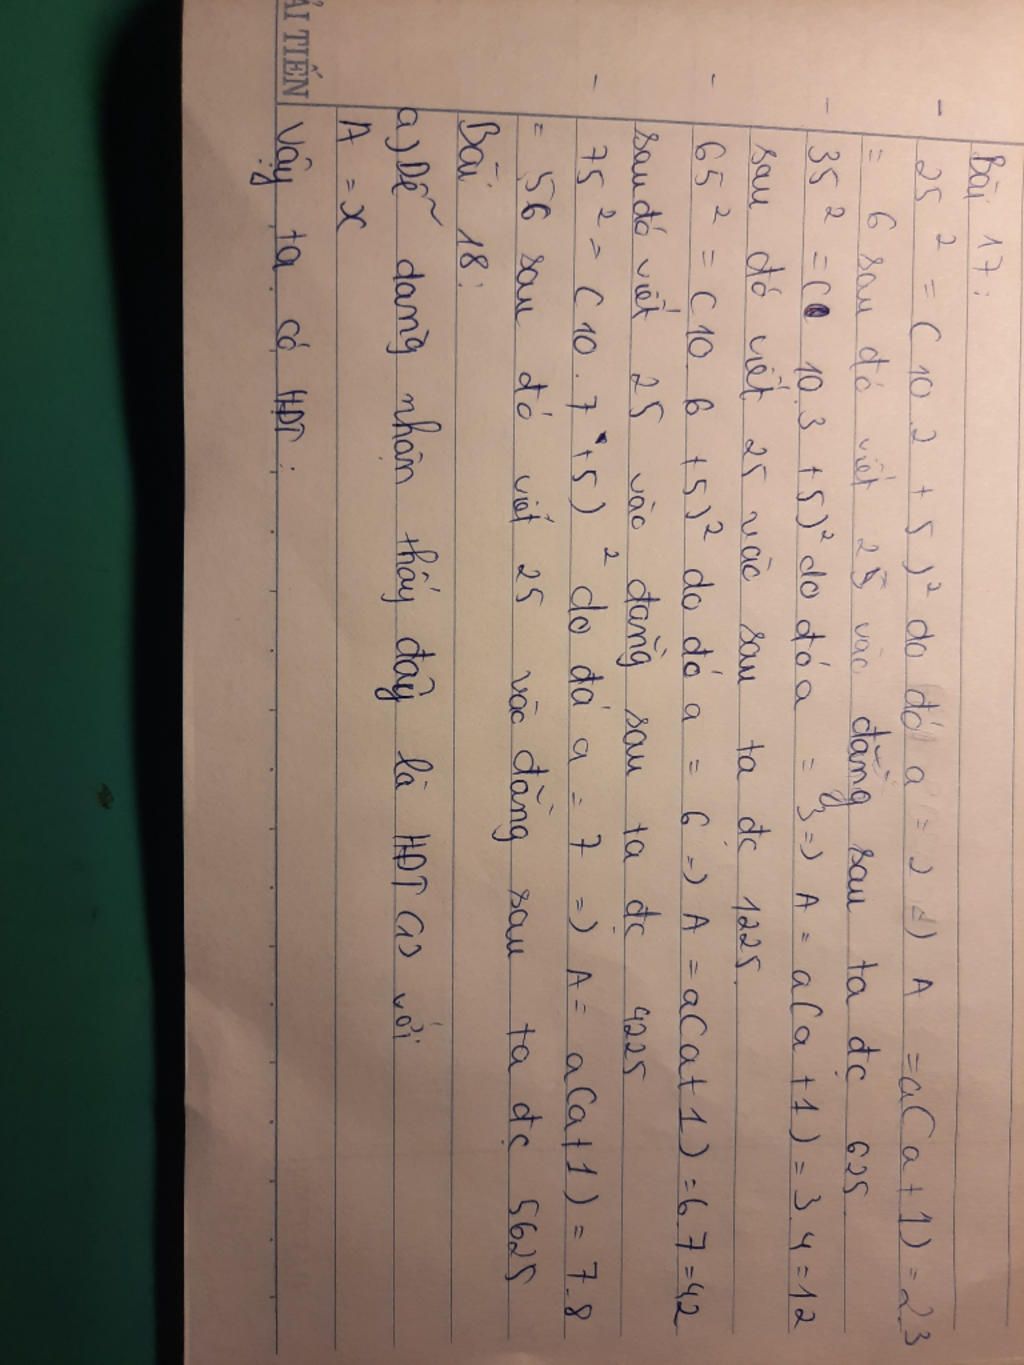 ẢI TIẾN
Bài 17:
- 25² = (10.2 + 5)² do đó a = 2 => A = a(a+1) = 2.3
= 6 sau đó viết 25 vào đằng sau ta đc 625
- 35² = (10.3 +5)² do đó a = 3 => A = a(a+1) = 3.4 = 12
sau đó viết 25 vào sau ta đc 1225.
- 65² = (10.6 +5)² do đó a = 6 => A = a(a+1) = 6.7 = 42
sau đó viết 25 vào đằng sau ta đc 4225
- 75² = (10.7 +5)² do đó a = 7 => A = a(a+1) = 7.8
= 56 sau đó viết 25 vào đằng sau ta đc 5625
Bài 18:
a) Dễ dang nhận thấy đây là HĐT (1) với
A = x
Vậy ta có HĐT: